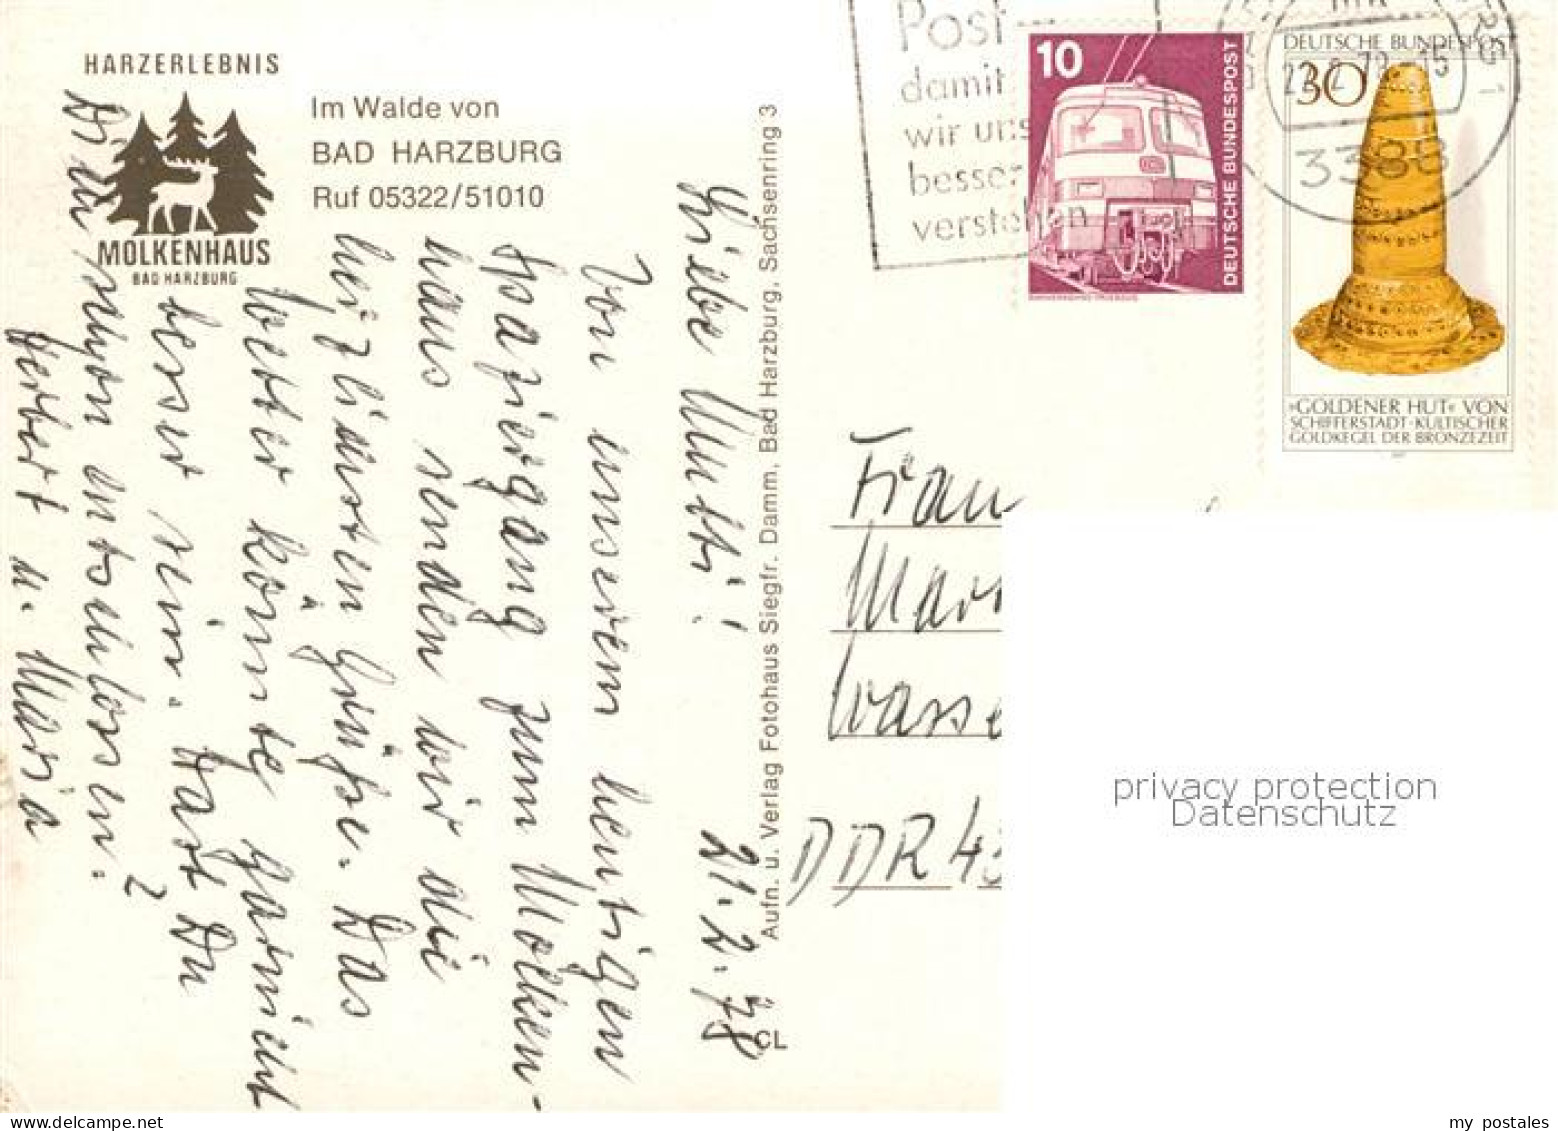 HARZERLEBNIS
MOLKENHAUS
BAD HARZBURG
Im Walde von
BAD HARZBURG
Ruf 05322/51010
Liebe Mutti! 21.2.78
Von unserem heutigen
Spaziergang zum Molken-
haus senden wir die
herzlichsten Grüße. Das
Wetter könnte garnicht
besser sein. Hast Du
Dir schon
entschlossen?
Herbert u. Maria
Aufn. u. Verlag Fotohaus Siegfr. Damm, Bad Harzburg, Sachsenring 3
CL
Post
damit
wir uns
besser
verstehen
10
DEUTSCHE BUNDESPOST
DEUTSCHE BUNDESPOST
30
3388
»GOLDENER HUT« VON
SCHIFFERSTADT·KULTISCHER
GOLDKEGEL DER BRONZEZEIT
Frau
DDR
privacy protection
Datenschutz
www.delcampe.net
my_postales